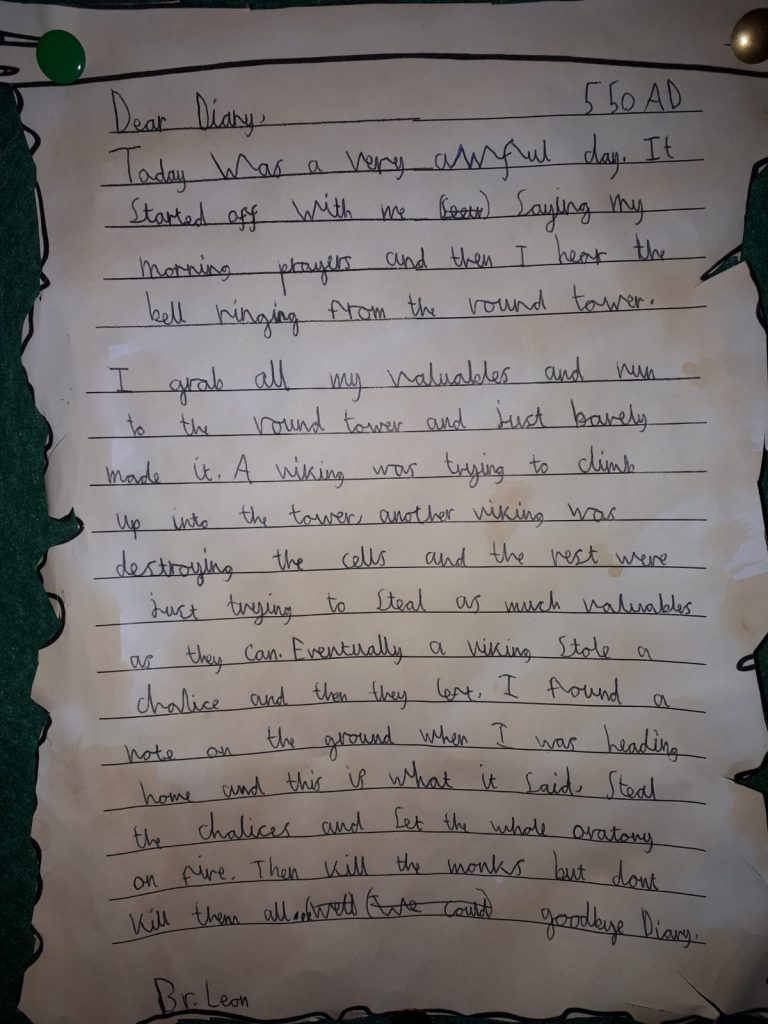 Dear Diary, 550 AD
Today was a very awful day. It
started off with me saying my
morning prayers and then I hear the
bell ringing from the round tower.
I grab all my valuables and run
to the round tower and just barely
made it. A viking was trying to climb
up into the tower, another viking was
destroying the cells and the rest were
just trying to steal as much valuables
as they can. Eventually a viking stole a
chalice and then they left. I found a
note on the ground when I was heading
home and this is what it said, steal
the chalices and set the whole oratory
on fire. Then kill the monks but dont
kill them all... goodbye Diary.
Br. Leon